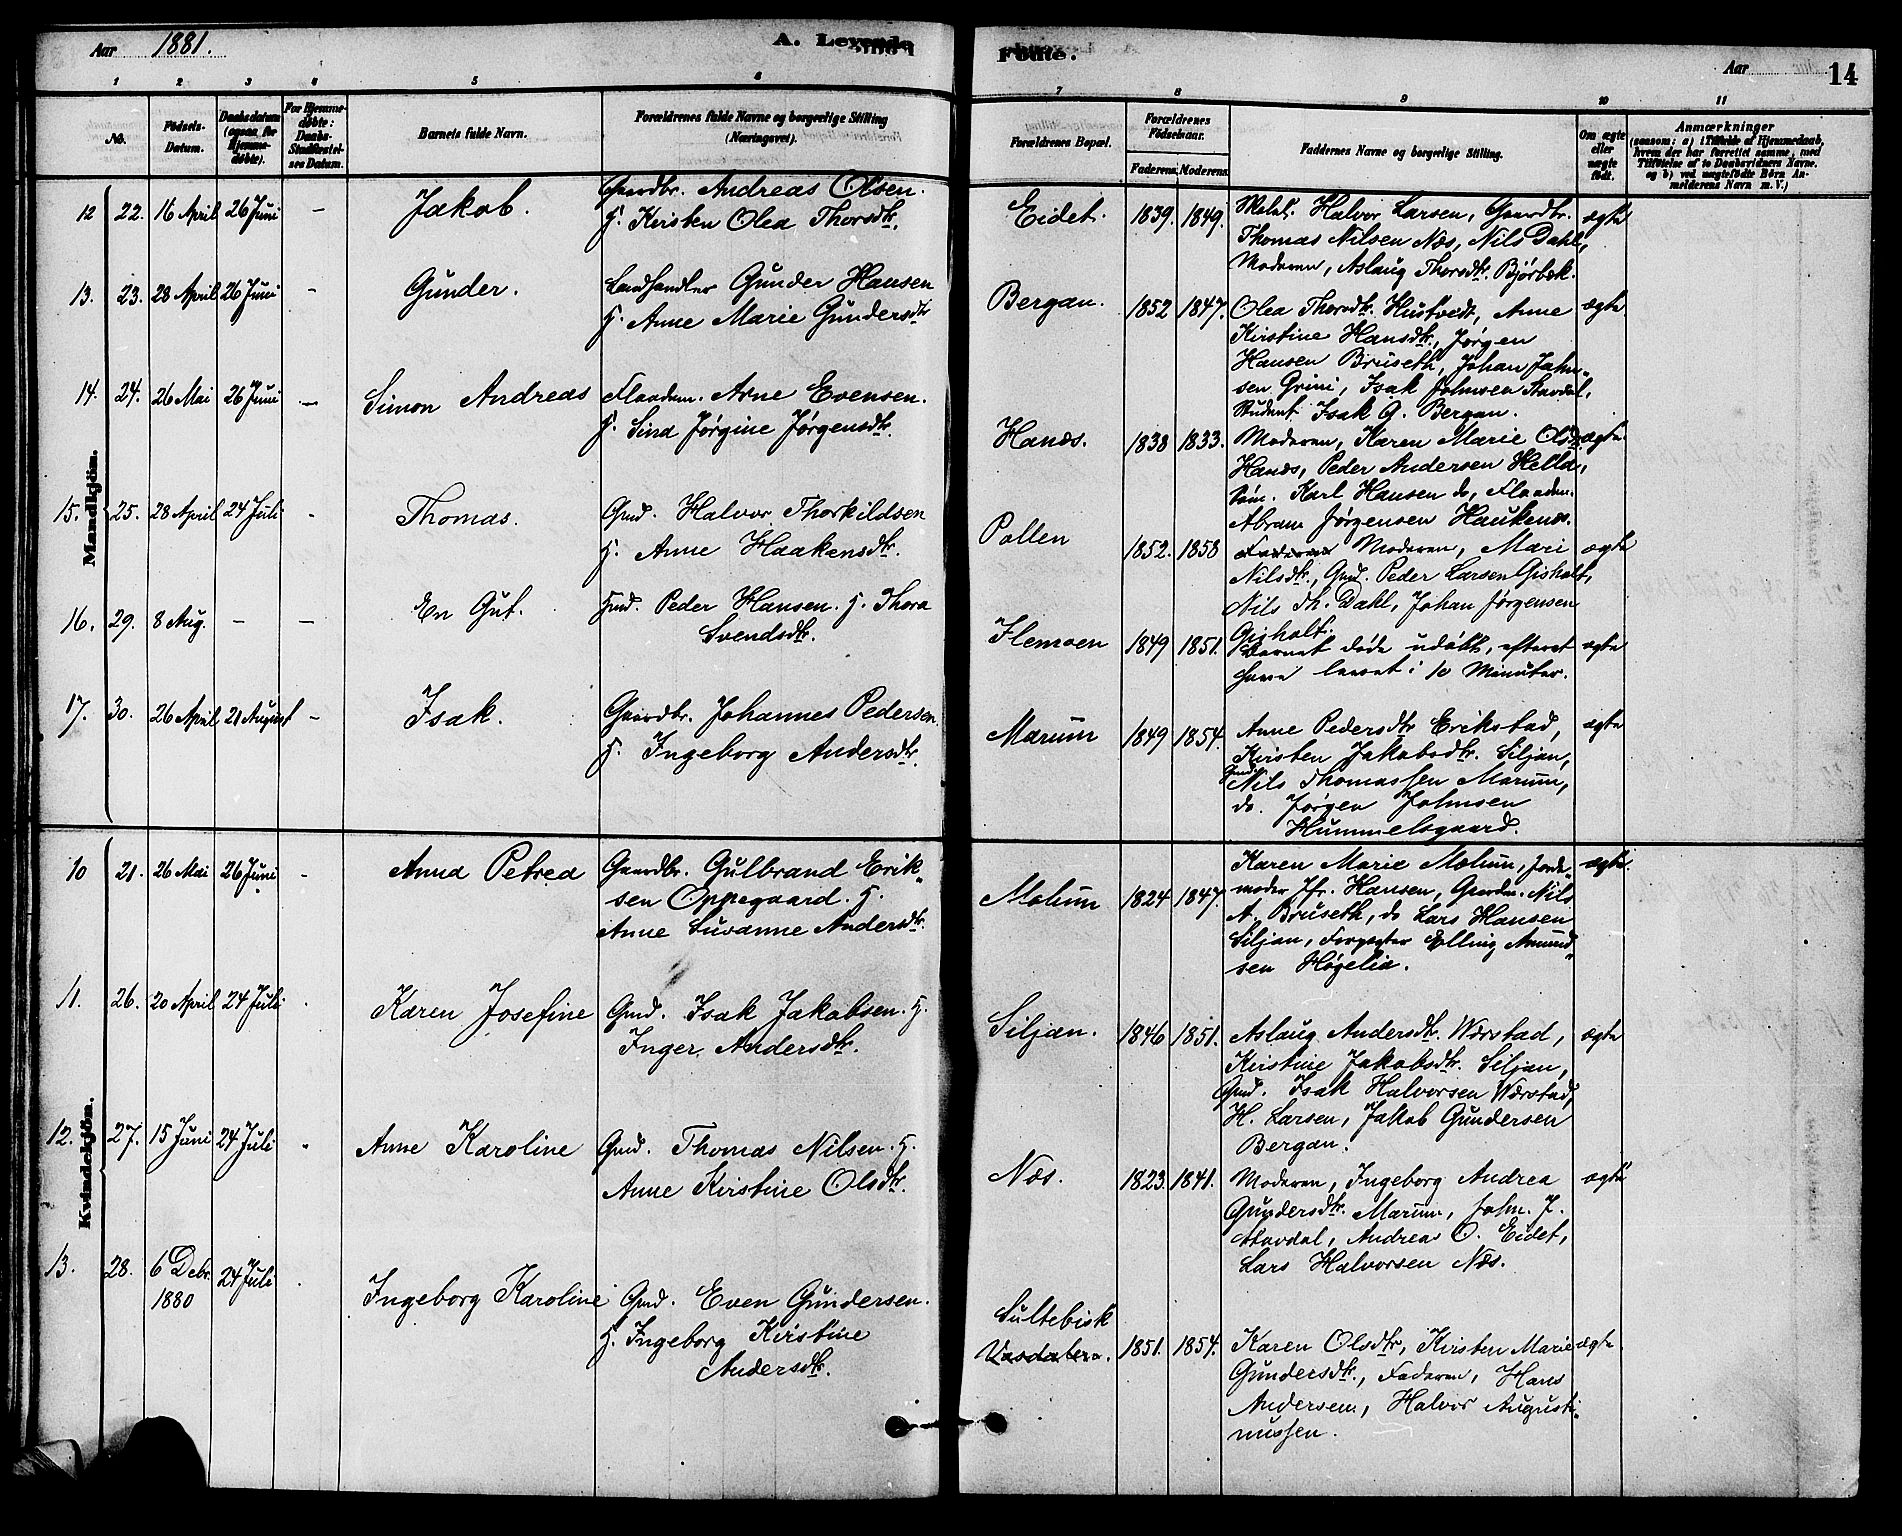 Aar 1881.
A. Levende
Fødte.
Aar
14
1 2 3 4 5 6 7 8 9 10 11
No.
Födsels-
Datum.
Daabsdatum
(ogsaa for
Hjemme-
døbte).
For Hjemme-
døbte:
Daabs-
Stadfæstel-
ses Datum.
Barnets fulde Navn.
Forældrenes fulde Navne og borgerlige Stilling
(Næringsvei).
Forældrenes Bopæl.
Forældrenes
Födselsaar.
Faderens. Moderens.
Faddernes Navne og borgerlige Stilling.
Om ægte
eller
uægte
født.
Anmærkninger
(saasom: a) i Tilfælde af Hjemmedaab,
hvem der har forrettet samme, med
Tilföielse af to Daabsvidners Navne,
og b) ved uægtefödte Börn An-
melderens Navn m. V.)
Mandkjön.
12 22. 16 April 26 Juni - Jakob.
Gaardbr. Andreas Olsen.
H. Kirsten Olea Thorsdtr.
Eidet. 1839. 1849.
Halvor Larsen, Gaardbr.
Thomas Nilsen Næs, Nils Dahl,
Moderen, Aslaug Thorsdtr. Bjørbæk.
ægte
13. 23. 28 April 26 Juni - Gunder.
Landhandler Gunder Hansen
H. Anne Marie Gundersdtr
Bergan. 1852 1847.
Olea Thorsdtr. Hustvedt, Anne
Kirstine Hansdtr., Jørgen
Hansen Bruseth, Johan Jahn-
sen Grini, Isak Johnsen Stavdal,
Student Isak G. Bergan.
ægte
14. 24. 26 Mai 26 Juni - Simon Andreas
Flaadem. Arne Evensen.
H. Sina Jørgine Jørgensdtr.
Hanæs. 1838 1833.
Moderen, Karen Marie Olsdtr
Hanæs, Peder Andersen Hella,
Karl Hansen do, Flaadem.
Abram Jørgensen Haukenæs.
ægte.
15. 25. 28 April 24 Juli - Thomas.
Gmd. Halvor Thorkildsen
H. Anne Haakensdtr.
Pollen 1852. 1858
Faderen Moderen, Mari
Nilsdtr., Gmd. Peder Larsen Gisholt,
Nils Th. Dahl, Johan Jørgensen
Gisholt.
ægte
16. 29. 8 Aug. - - En Gut.
Hmd. Peder Hansen. H. Thora
Svendsdtr.
Flemoen 1849 1851.
Barnet døde udøbt, efterat
have levet i 10 Minuter.
ægte
17. 30. 26 April 21 August - Isak.
Gaardbr. Johannes Pedersen.
H. Ingeborg Andersdtr.
Marum 1849 1854.
Anne Pedersdtr Erikstad,
Kirsten Jakobsdtr. Siljan,
Gmd. Nils Thomassen Marum,
do. Jørgen Johnsen
Hummelsgaard.
ægte
Kvindekjön.
10 21. 26 Mai 26 Juni - Anna Petrea
Gaardbr. Gulbrand Erik-
sen Oppegaard. H.
Anne Susanne Andersdtr.
Mælum 1824 1847.
Karen Marie Mælum, Jorde-
moder Jfr. Hansen, Gaardm. Nils
A. Bruseth, do Lars Hansen
Siljan, Forpagter Elling Amund-
sen Høgelia.
ægte.
11. 26. 20 April 24 Juli . Karen Josefine
Gmd. Isak Jakobsen. H.
Inger Andersdtr.
Siljan. 1846 1851.
Aslaug Andersdtr. Wærstad,
Kirstine Jakobsdtr. Siljan,
Gmd. Isak Halvorsen Wærstad,
H. Larsen, Jakob Gundersen
Bergan.
ægte
12. 27. 15 Juni 24 Juli " Anne Karoline
Gmd. Thomas Nilsen. H.
Anne Kirstine Olsdtr.
Næs. 1823. 1841.
Moderen, Ingeborg Andrea
Gundersdtr. Marum, John J.
Stavdal, Andreas O. Eidet,
Lars Halvorsen Næs.
ægte
13. 28. 6 Debr.
1880
24 Juli . Ingeborg Karoline
Gmd. Even Gundersen.
H. Ingeborg Kirstine
Andersdtr.
Sultebisk
1851. 1854.
Karen Olsdtr, Kirsten Marie
Gundersdtr., Faderen, Hans
Andersen, Halvor Augusti-
nussen.
ægte